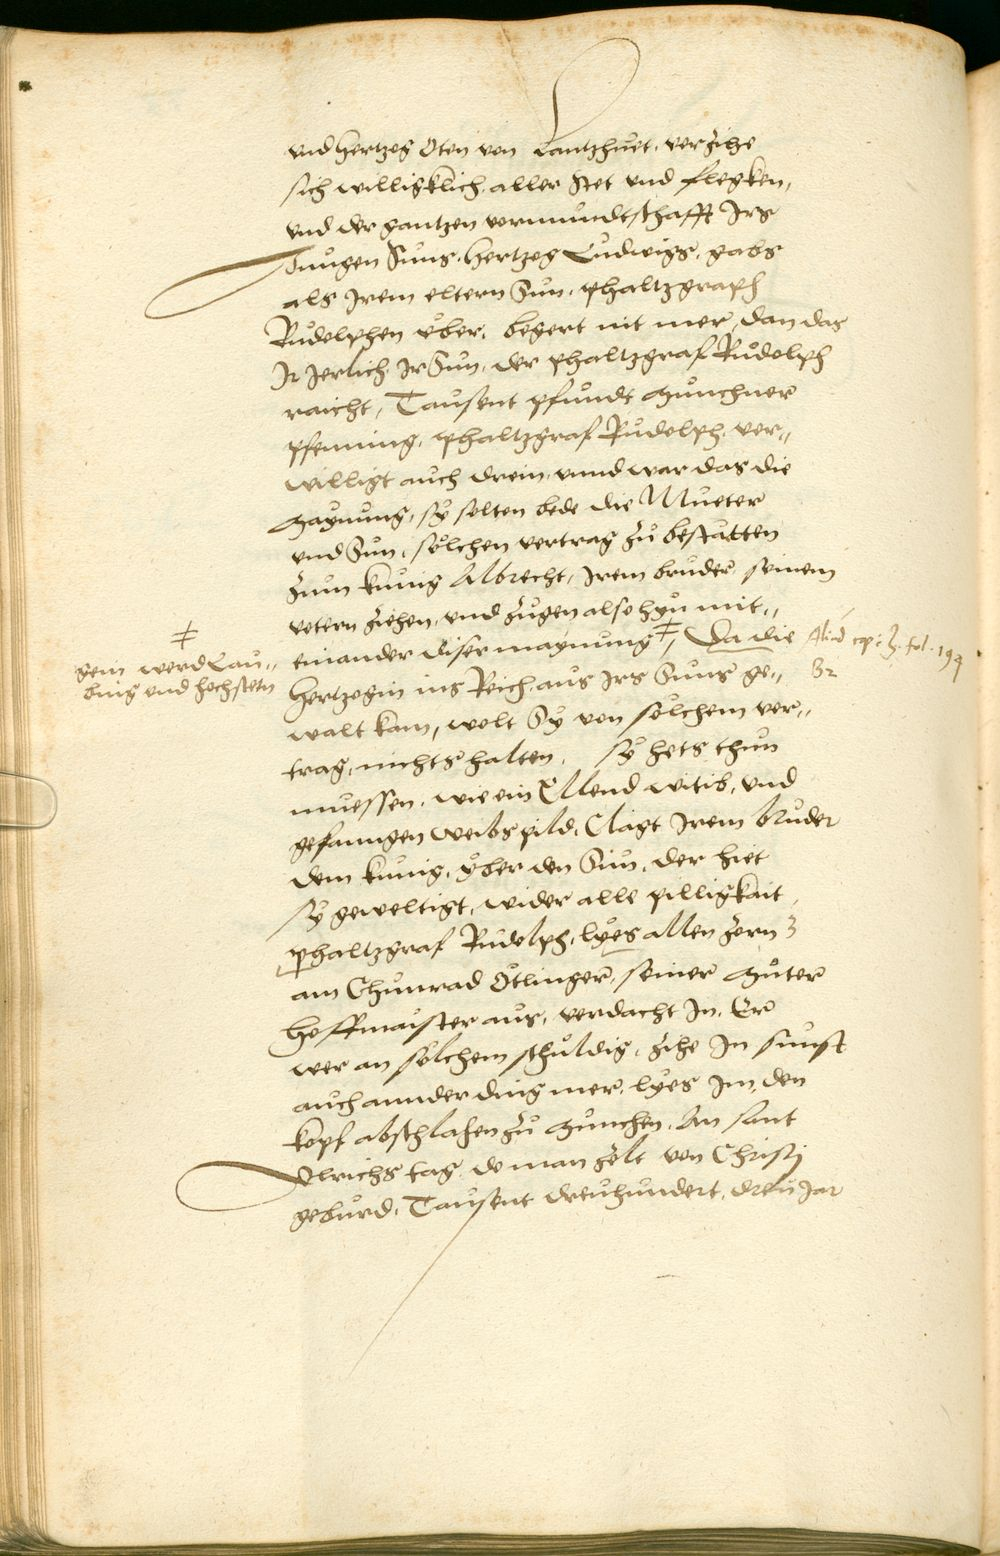 und hertzog Oten von Lantzhuet, verzihe
sich willigklich aller Stet und flegken,
und der gantzen vormundtschafft Irs
Jungen Suns, hertzog Ludwigs, gabs
als Irem eltern Sun, phaltzgraph
Rudolphen uber, begert nit mer, dan das
Ir Jerlich Ir Sun, der phaltzgraf Rudolph
raicht, Tausent pfundt Munchner
pfenning, phaltzgraf Rudolph, ver„
willigt auch drein, unnd war das die
Maynung, sy solten bede die Mueter
und Sun, solchen vertrag zu bestatten
zum kunig Albrecht, Irem bruder, seinem
vetern ziehen, und zugen also hyn mit„
einander diser maynung ǂ, Da die
hertzogin ins Reich, aus Irs Suns ge„
walt kam, wolt Sy von solchem ver„
trag, nichts halten, sy hets thun
muessen, wie ein Ellend witib, und
gefanngen weibspild, Clagt Irem bruder
dem kunig, uber den Sun, der hiet
sy geweltigt, wider alle pilligkait,
phaltzgraf Rudolph, lyes allen zorn
am Chunrad Otlinger, seiner Muter
hoffmaister aus, verdacht In, Er
wer an solchem schuldig, zihe In sunst
auch annder ding mer, lyes Im, den
kopf abschlahen zu Munchen, An sant
Ulrichs tag, do man zelt von Christi
geburd, Tausent dreuhundert, dreu Jar
ǂ
gein werd Lau„
bing und hochstetn
cap: 3. fol. 194